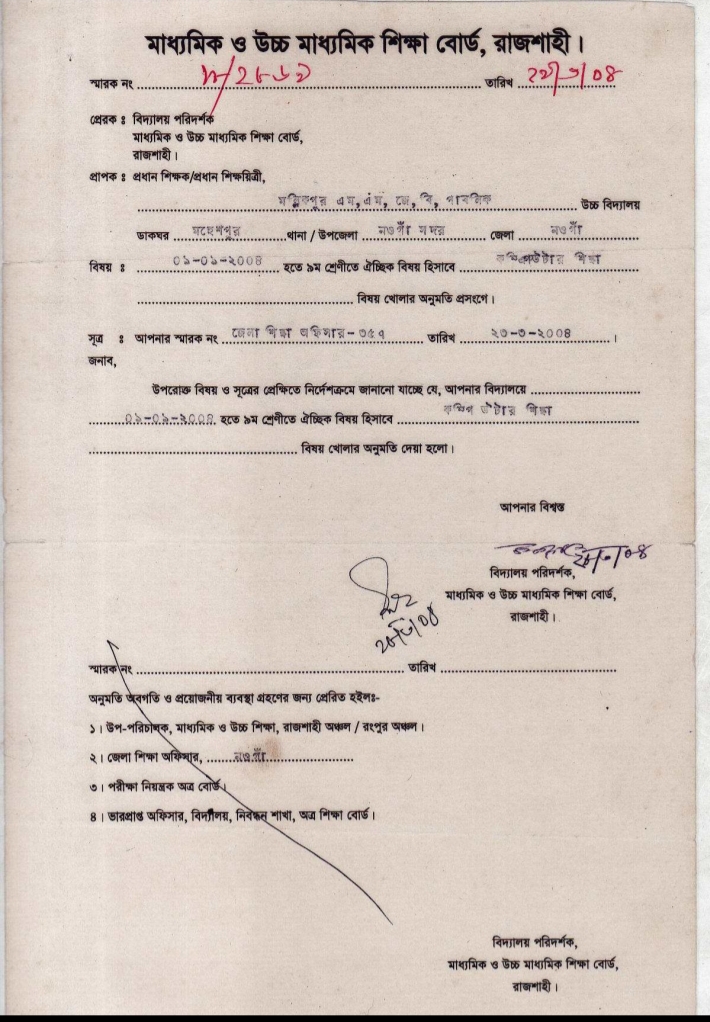 মাধ্যমিক ও উচ্চ মাধ্যমিক শিক্ষা বোর্ড, রাজশাহী।
স্মারক নং ........................ তারিখ ........................
প্রেরক ঃ বিদ্যালয় পরিদর্শক
মাধ্যমিক ও উচ্চ মাধ্যমিক শিক্ষা বোর্ড,
রাজশাহী।
প্রাপক ঃ প্রধান শিক্ষক/প্রধান শিক্ষয়িত্রী,
মল্লিকপুর এম,এম, জে, বি, পাবলিক উচ্চ বিদ্যালয়
ডাকঘর মহেশপুর থানা / উপজেলা নওগাঁ সদর জেলা নওগাঁ
বিষয় ঃ ০১-০১-২০০৪ হতে ৯ম শ্রেণীতে ঐচ্ছিক বিষয় হিসাবে কম্পিউটার শিক্ষা
........................ বিষয় খোলার অনুমতি প্রসংগে।
সূত্র ঃ আপনার স্মারক নং জেলা শিক্ষা অফিসার-৩৫৭ তারিখ ২৩-৩-২০০৪ ।
জনাব,
উপরোক্ত বিষয় ও সূত্রের প্রেক্ষিতে নির্দেশক্রমে জানানো যাচ্ছে যে, আপনার বিদ্যালয়ে ........................
০১-০১-২০০৪ হতে ৯ম শ্রেণীতে ঐচ্ছিক বিষয় হিসাবে কম্পিউটার শিক্ষা
........................ বিষয় খোলার অনুমতি দেয়া হলো।
আপনার বিশ্বস্ত
বিদ্যালয় পরিদর্শক,
মাধ্যমিক ও উচ্চ মাধ্যমিক শিক্ষা বোর্ড,
রাজশাহী।
স্মারক নং ........................ তারিখ ........................
অনুমতি অবগতি ও প্রয়োজনীয় ব্যবস্থা গ্রহণের জন্য প্রেরিত হইলঃ-
১। উপ-পরিচালক, মাধ্যমিক ও উচ্চ শিক্ষা, রাজশাহী অঞ্চল / রংপুর অঞ্চল।
২। জেলা শিক্ষা অফিসার, নওগাঁ
৩। পরীক্ষা নিয়ন্ত্রক অত্র বোর্ড।
৪। ভারপ্রাপ্ত অফিসার, বিদ্যালয়, নিবন্ধন শাখা, অত্র শিক্ষা বোর্ড।
বিদ্যালয় পরিদর্শক,
মাধ্যমিক ও উচ্চ মাধ্যমিক শিক্ষা বোর্ড,
রাজশাহী।